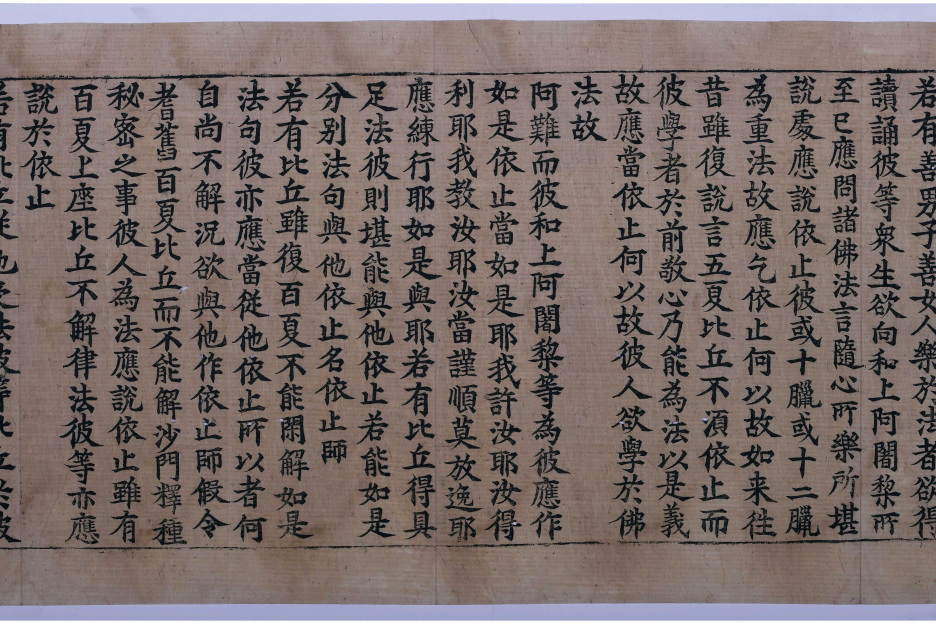 若有善男子善女人樂於法者欲得
讀誦彼等衆生欲向和上阿闍黎所
至已應問諸佛法言隨心所樂所堪
說處應說依止彼或十臘或十二臘
為重法故應乞依止何以故如来往
昔雖復說言五夏比丘不須依止而
彼學者於前敬心乃能為法以是義
故應當依止何以故彼人欲學於佛
法故
阿難而彼和上阿闍黎等為彼應作
如是依止當如是耶我許汝耶汝得
利耶我教汝耶汝當謹順莫放逸耶
應練行耶如是與耶若有比丘得具
足法彼則堪能與他依止若能如是
分别法句與他依止名依止師
若有比丘雖復百夏不能閑解如是
法句彼亦應當從他依止所以者何
自尚不解況欲與他作依止師假令
耆舊百夏比丘而不能解沙門釋種
秘密之事彼人為法應說依止雖有
百夏上座比丘不解律法彼等亦應
說於依止
若有比丘從他受法彼等比丘於彼